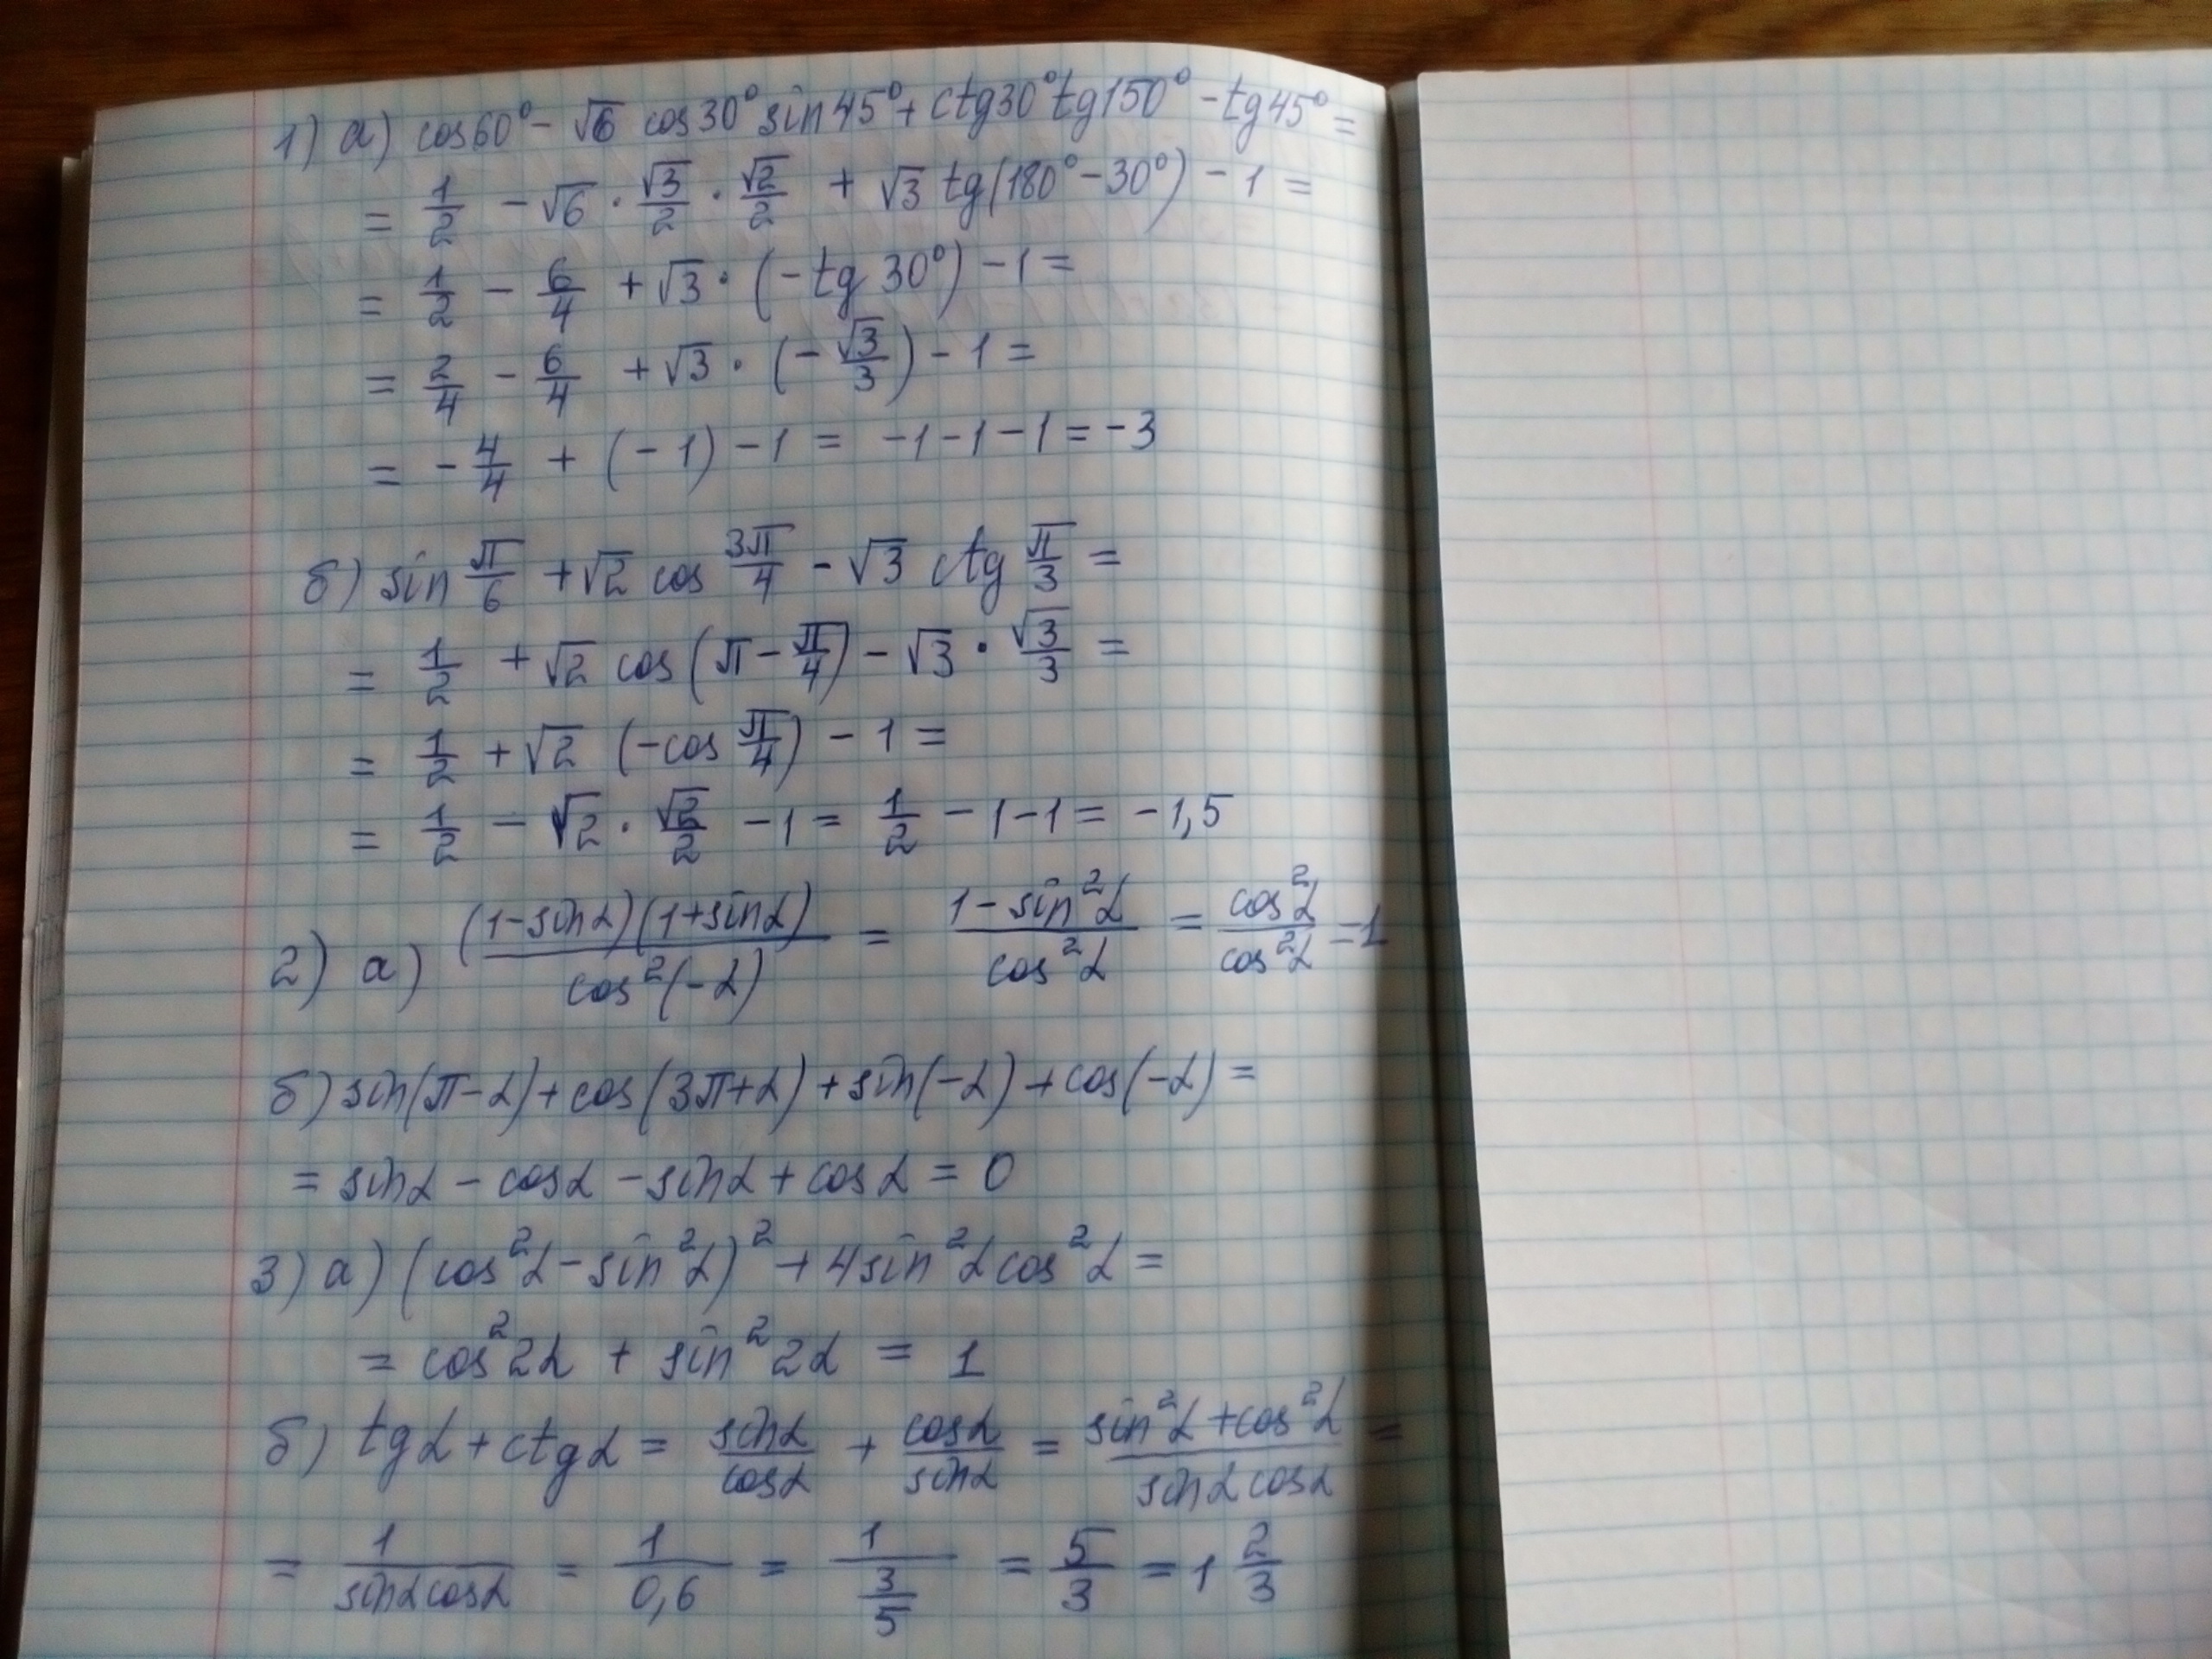 1) а) cos60° - √6 cos30° sin45° + ctg30° tg150° - tg45° =
= 1/2 - √6 · √3/2 · √2/2 + √3 tg(180° - 30°) - 1 =
= 1/2 - 6/4 + √3 · (-tg 30°) - 1 =
= 2/4 - 6/4 + √3 · (-√3/3) - 1 =
= -4/4 + (-1) - 1 = -1-1-1 = -3
б) sin π/6 + √2 cos 3π/4 - √3 ctg π/3 =
= 1/2 + √2 cos(π - π/4) - √3 · √3/3 =
= 1/2 + √2 (-cos π/4) - 1 =
= 1/2 - √2 · √2/2 - 1 = 1/2 - 1 - 1 = -1,5
2) а) (1-sinα)(1+sinα)/cos²(-α) = (1-sin²α)/cos²α = cos²α/cos²α = 1
б) sin(π-α) + cos(3π+α) + sin(-α) + cos(-α) =
= sinα - cosα - sinα + cosα = 0
3) а) (cos²α - sin²α)² + 4sin²α cos²α =
= cos²2α + sin²2α = 1
б) tgα + ctgα = sinα/cosα + cosα/sinα = (sin²α + cos²α)/(sinα cosα) =
= 1/(sinα cosα) = 1/0,6 = 1/(3/5) = 5/3 = 1 2/3